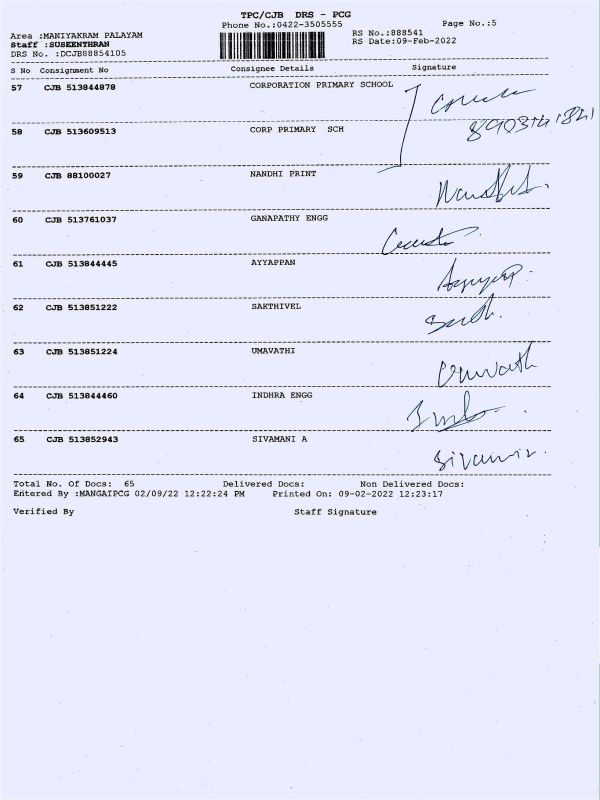 TPC/CJB DRS - PCG
Phone No.:0422-3505555
Page No.:5
Area :MANIYAKRAM PALAYAM
RS No.:888541
Staff :SUSEENTHRAN
RS Date:09-Feb-2022
DRS No. :DCJB88854105
S No Consignment No Consignee Details Signature
57 CJB 513844878 CORPORATION PRIMARY SCHOOL
58 CJB 513609513 CORP PRIMARY SCH
59 CJB 88100027 NANDHI PRINT
60 CJB 513761037 GANAPATHY ENGG
61 CJB 513844445 AYYAPPAN
62 CJB 513851222 SAKTHIVEL
63 CJB 513851224 UMAVATHI
64 CJB 513844460 INDHRA ENGG
65 CJB 513852943 SIVAMANI A
Total No. Of Docs: 65 Delivered Docs: Non Delivered Docs:
Entered By :MANGAIPCG 02/09/22 12:22:24 PM Printed On: 09-02-2022 12:23:17
Verified By Staff Signature